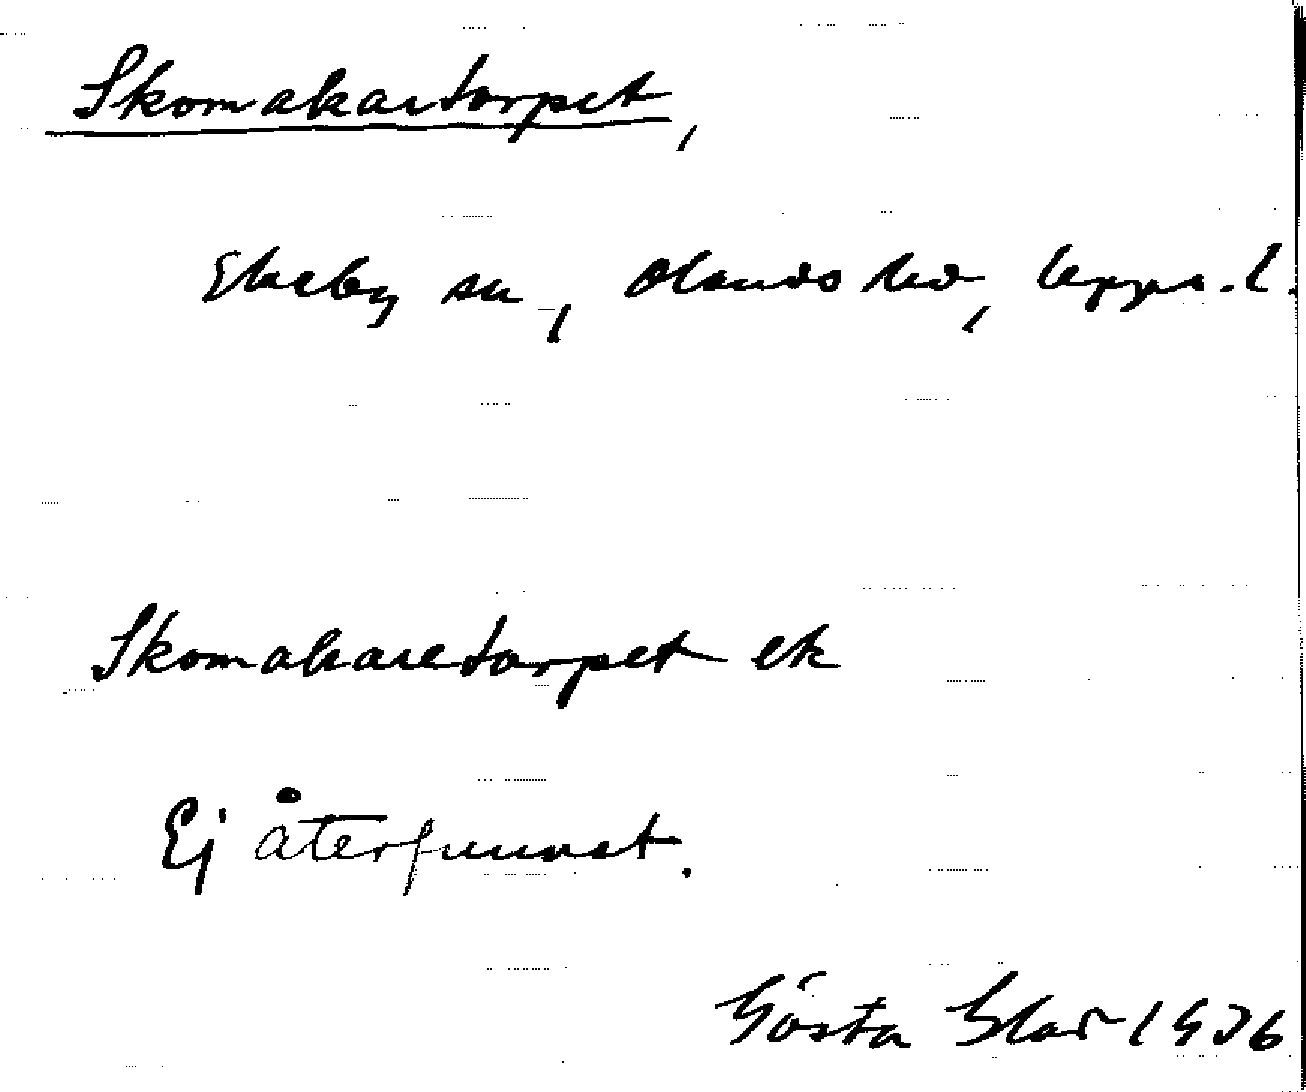 Skomakartorpet,
Ekeby sn, Olands hd, Upps. l.
Skomakaretorpet ek
Ej återfunnet.
Gösta 1936